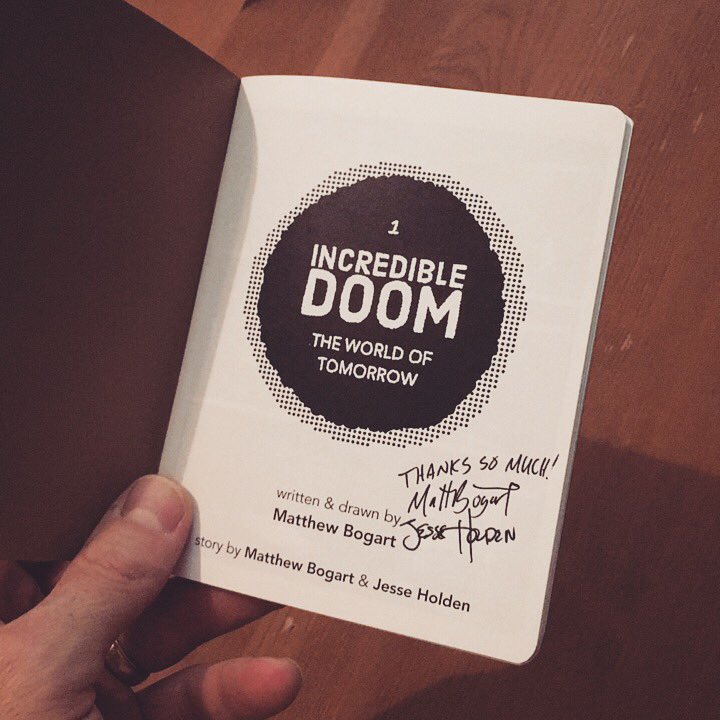 1
INCREDIBLE
DOOM
THE WORLD OF
TOMORROW
THANKS SO MUCH!
Matt Bogart
Jesse Holden
written & drawn by
Matthew Bogart
story by Matthew Bogart & Jesse Holden